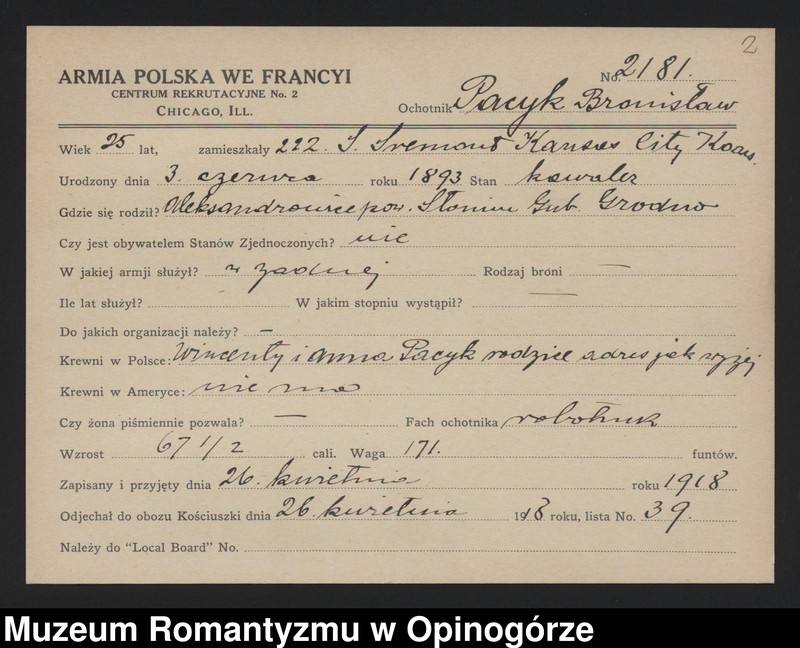 2
ARMIA POLSKA WE FRANCYI
CENTRUM REKRUTACYJNE No. 2
CHICAGO, ILL.
No. 2181.
Ochotnik Pacyk Bronisław
Wiek 25 lat, zamieszkały 222. S. Kansas City Kans.
Urodzony dnia 3. czerwca roku 1893 Stan kawaler
Gdzie się rodził? Aleksandrowice pow. Słonim Gub. Grodno
Czy jest obywatelem Stanów Zjednoczonych? nie
W jakiej armji służył? w żadnej Rodzaj broni —
Ile lat służył? W jakim stopniu wystąpił? —
Do jakich organizacji należy? –
Krewni w Polsce: Wincenty i Anna Pacyk rodzice adres jak wyżej
Krewni w Ameryce: nie ma
Czy żona piśmiennie pozwala? — Fach ochotnika robotnik
Wzrost 67 1/2 cali. Waga 171. funtów.
Zapisany i przyjęty dnia 26. kwietnia roku 1918
Odjechał do obozu Kościuszki dnia 26. kwietnia 1918 roku, lista No. 39.
Należy do “Local Board” No.
Muzeum Romantyzmu w Opinogórze